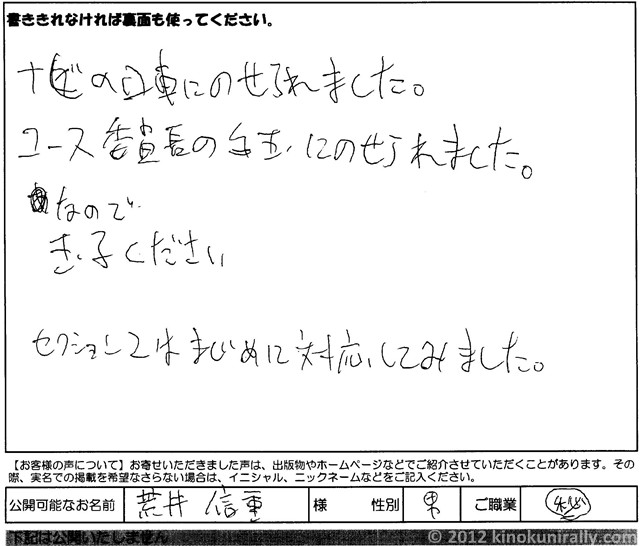 書ききれなければ裏面も使ってください。
ナビの口車にのせられました。
コース委員長の にのせられました。
なので
ください
セクション2はまじめに対応してみました。
【お客様の声について】お寄せいただきました声は、出版物やホームページなどでご紹介させていただくことがあります。その
際、実名での掲載を希望なさらない場合は、イニシャル、ニックネームなどをご記入ください。
公開可能なお名前 荒井 信重 様 性別 男 ご職業
下記は公開いたしません
© 2012 kinokunirally.com